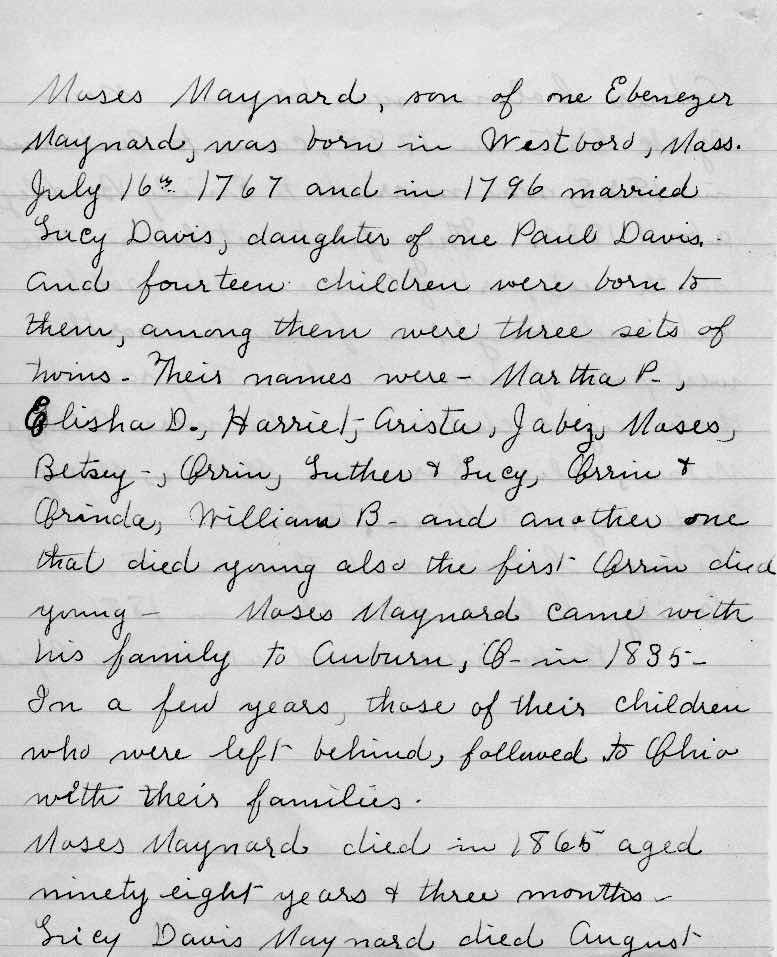 Moses Maynard, son of one Ebenezer
Maynard, was born in Westboro, Mass.
July 16th 1767 and in 1796 married
Lucy Davis, daughter of one Paul Davis.
And fourteen children were born to
them, among them were three sets of
twins - Their names were - Martha P -,
Elisha D., Harriet, Arista, Jabez, Moses,
Betsey -, Orrin, Luther & Lucy, Orrin &
Orinda, William B - and another one
that died young also the first Orrin died
young - Moses Maynard came with
his family to Auburn, O - in 1835 -
In a few years, those of their children
who were left behind, followed to Ohio
with their families.
Moses Maynard died in 1865 aged
ninety eight years & three months -
Lucy Davis Maynard died August